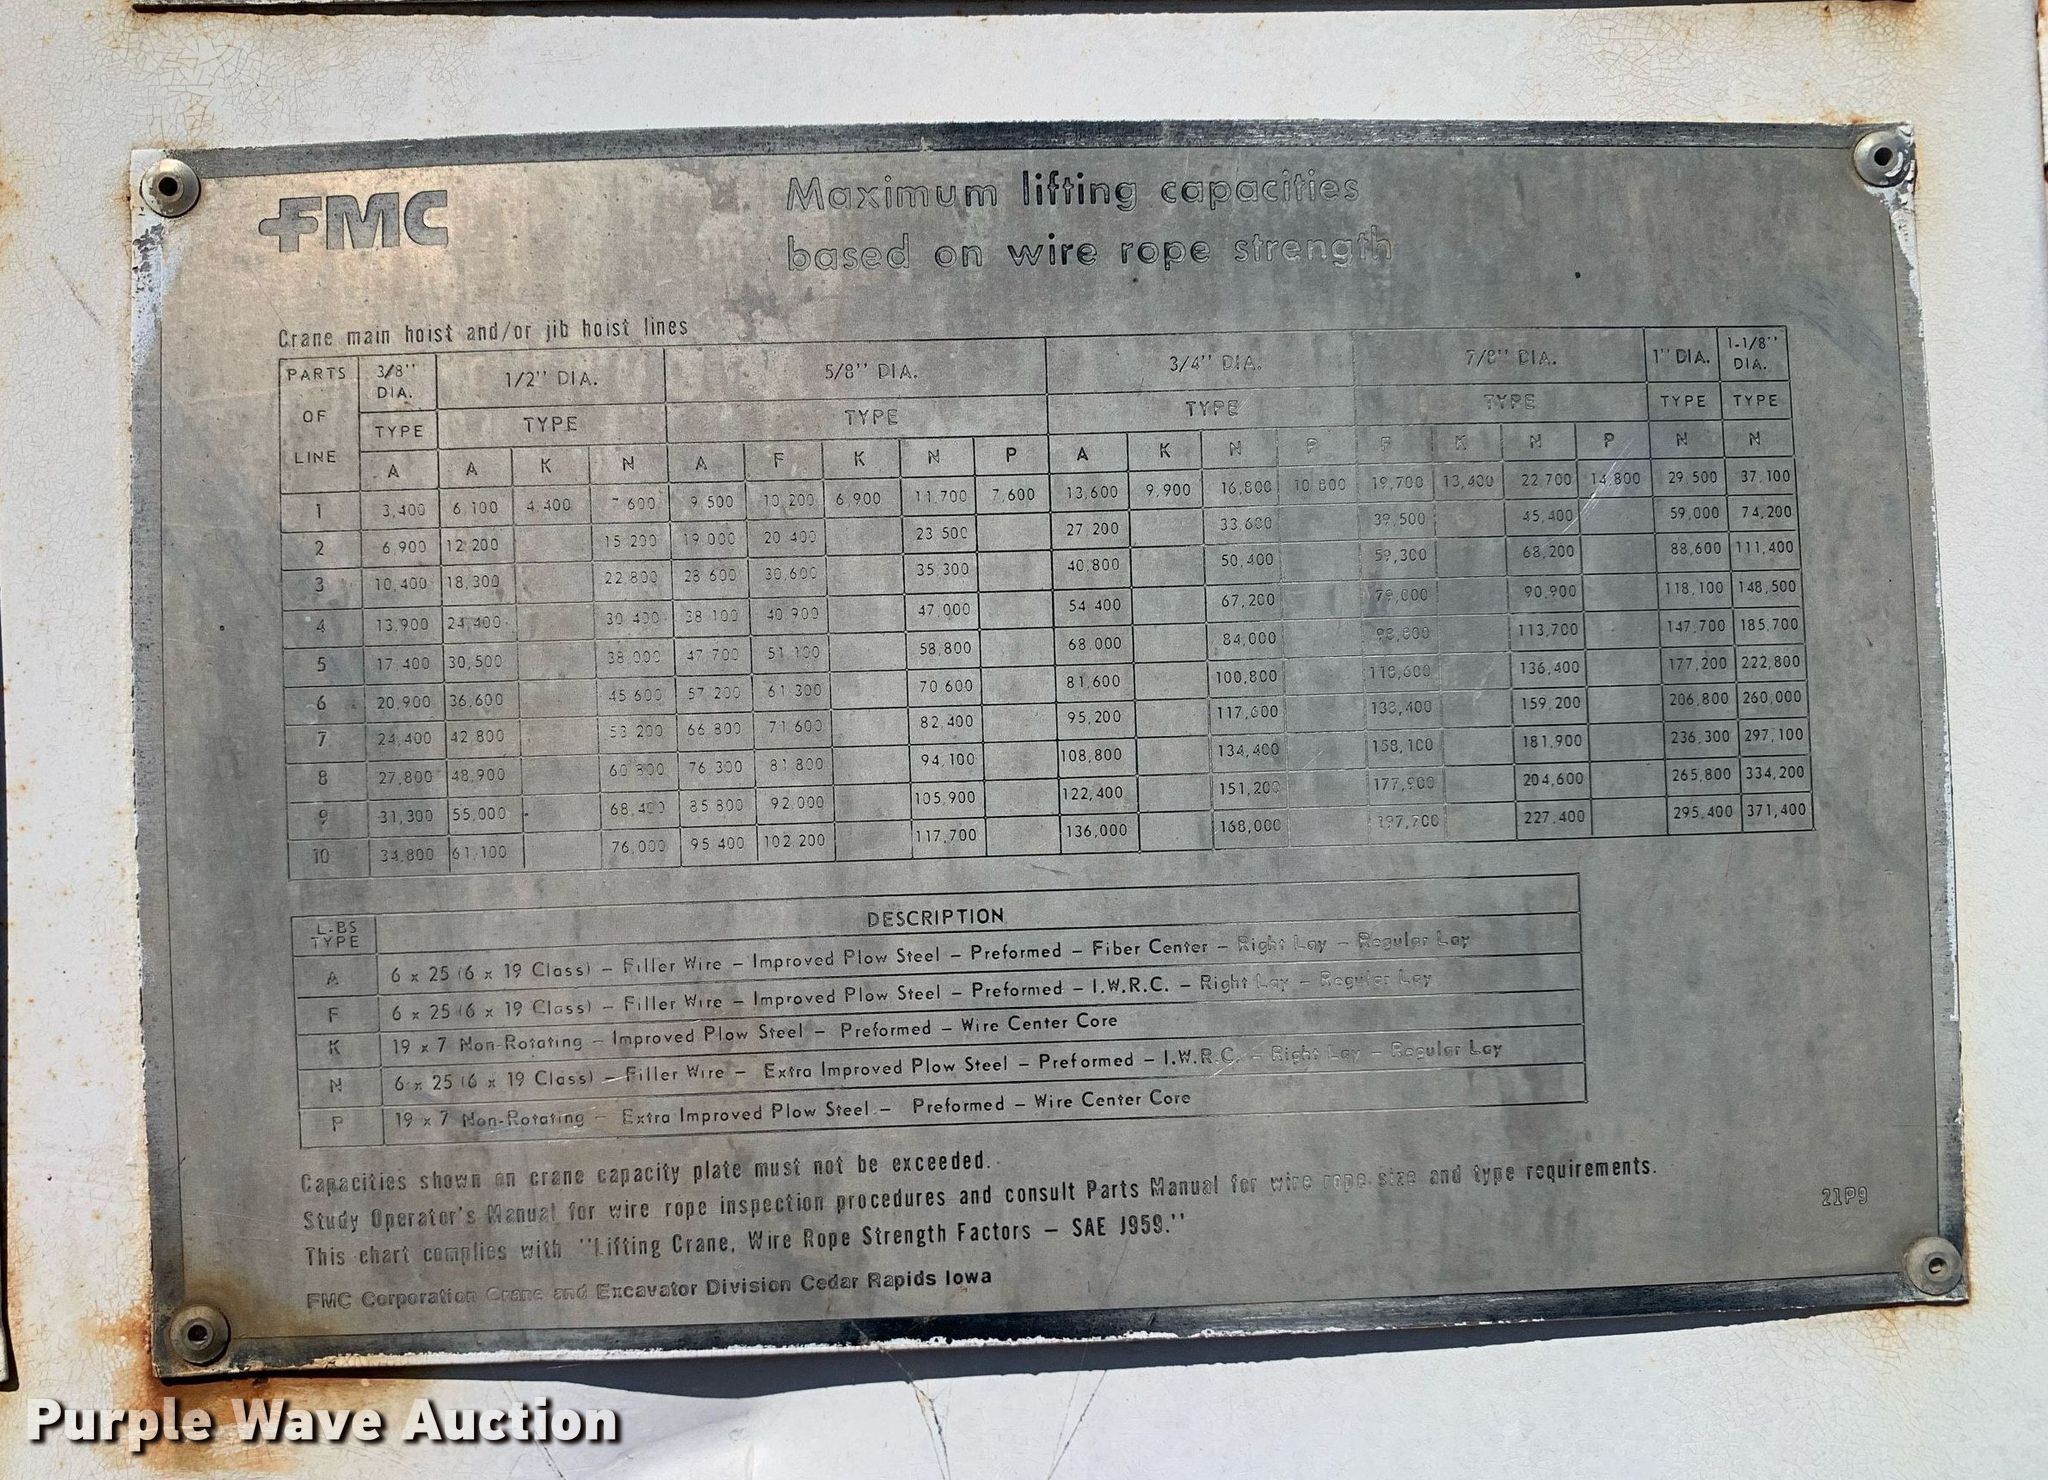 FMC
Maximum lifting capacities
based on wire rope strength
Crane main hoist and/or jib hoist lines
PARTS OF LINE 3/8'' DIA. 1/2'' DIA. 5/8'' DIA. 3/4'' DIA. 7/8'' DIA. 1'' DIA. 1-1/8'' DIA.
TYPE TYPE TYPE TYPE TYPE TYPE TYPE
A A K N A F K N P A K N P F K N P N N
1 3,400 6,100 4,400 7,600 9,500 10,200 6,900 11,700 7,600 13,600 9,900 16,800 10,800 19,700 13,400 22,700 14,800 29,500 37,100
2 6,900 12,200 15,200 19,000 20,400 23,500 27,200 33,600 39,500 45,400 59,000 74,200
3 10,400 18,300 22,800 28,600 30,600 35,300 40,800 50,400 59,300 68,200 88,600 111,400
4 13,900 24,400 30,400 38,100 40,900 47,000 54,400 67,200 79,000 90,900 118,100 148,500
5 17,400 30,500 38,000 47,700 51,100 58,800 68,000 84,000 98,800 113,700 147,700 185,700
6 20,900 36,600 45,600 57,200 61,300 70,600 81,600 100,800 118,600 136,400 177,200 222,800
7 24,400 42,800 53,200 66,800 71,600 82,400 95,200 117,600 138,400 159,200 206,800 260,000
8 27,800 48,900 60,800 76,300 81,800 94,100 108,800 134,400 158,100 181,900 236,300 297,100
9 31,300 55,000 68,400 85,800 92,000 105,900 122,400 151,200 177,900 204,600 265,800 334,200
10 34,800 61,100 76,000 95,400 102,200 117,700 136,000 168,000 197,700 227,400 295,400 371,400
L-BS TYPE DESCRIPTION
A 6 x 25 (6 x 19 Class) – Filler Wire – Improved Plow Steel – Preformed – Fiber Center – Right Lay – Regular Lay
F 6 x 25 (6 x 19 Class) – Filler Wire – Improved Plow Steel – Preformed – I.W.R.C. – Right Lay – Regular Lay
K 19 x 7 Non-Rotating – Improved Plow Steel – Preformed – Wire Center Core
N 6 x 25 (6 x 19 Class) – Filler Wire – Extra Improved Plow Steel – Preformed – I.W.R.C. – Right Lay – Regular Lay
P 19 x 7 Non-Rotating – Extra Improved Plow Steel – Preformed – Wire Center Core
Capacities shown on crane capacity plate must not be exceeded.
Study Operator's Manual for wire rope inspection procedures and consult Parts Manual for wire rope size and type requirements.
This chart complies with "Lifting Crane, Wire Rope Strength Factors – SAE J959."
21P9
FMC Corporation Crane and Excavator Division Cedar Rapids Iowa
Purple Wave Auction